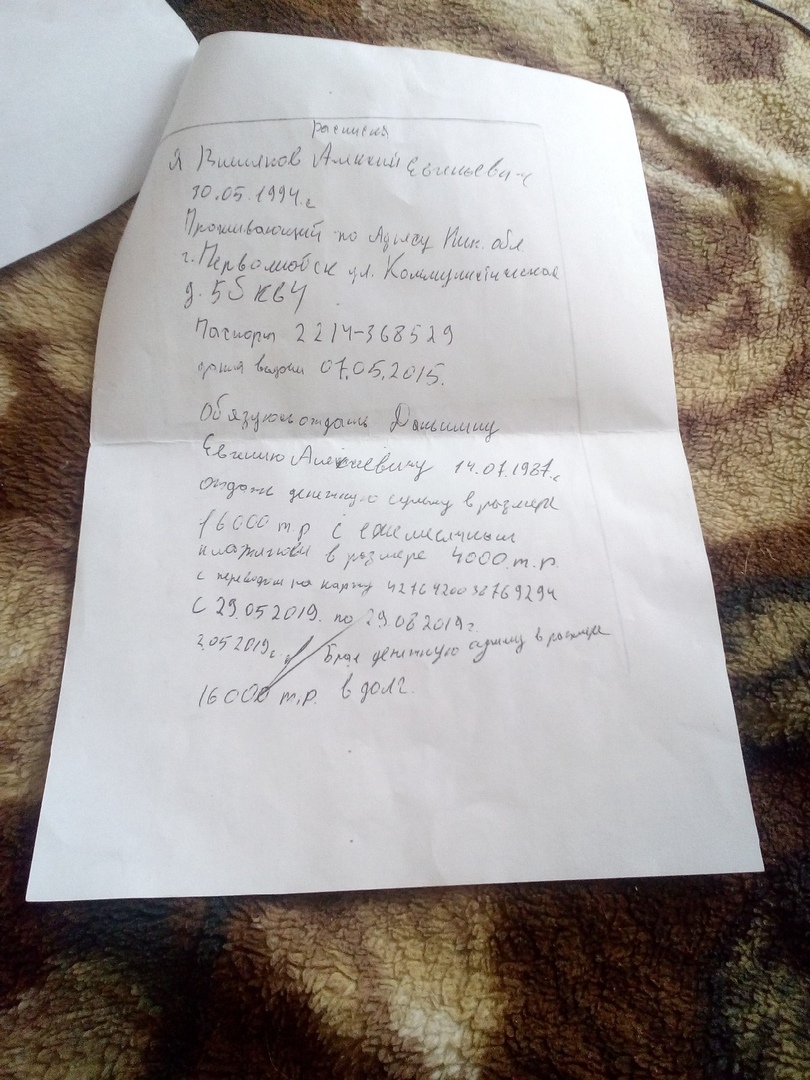 расписка
Я Вишняков Алексей Евгеньевич
10.05.1994г
Проживающий по Адресу Ниж. обл
г. Первомайск ул. Коммунистическая
д. 55 кв 4
Паспорт 2214-368529
дата выдачи 07.05.2015.
Обязуюсь отдать
Евгению Алексеевичу 14.07.1987г.
отдать денежную сумму в размере
16000 т.р с ежемесячным
платежом в размере 4000 т.р.
с переводом на карту
С 29.05.2019. по 29.08 2019г.
2.05 2019г. Брал денежную сумму в размере
16000 т.р. в долг.